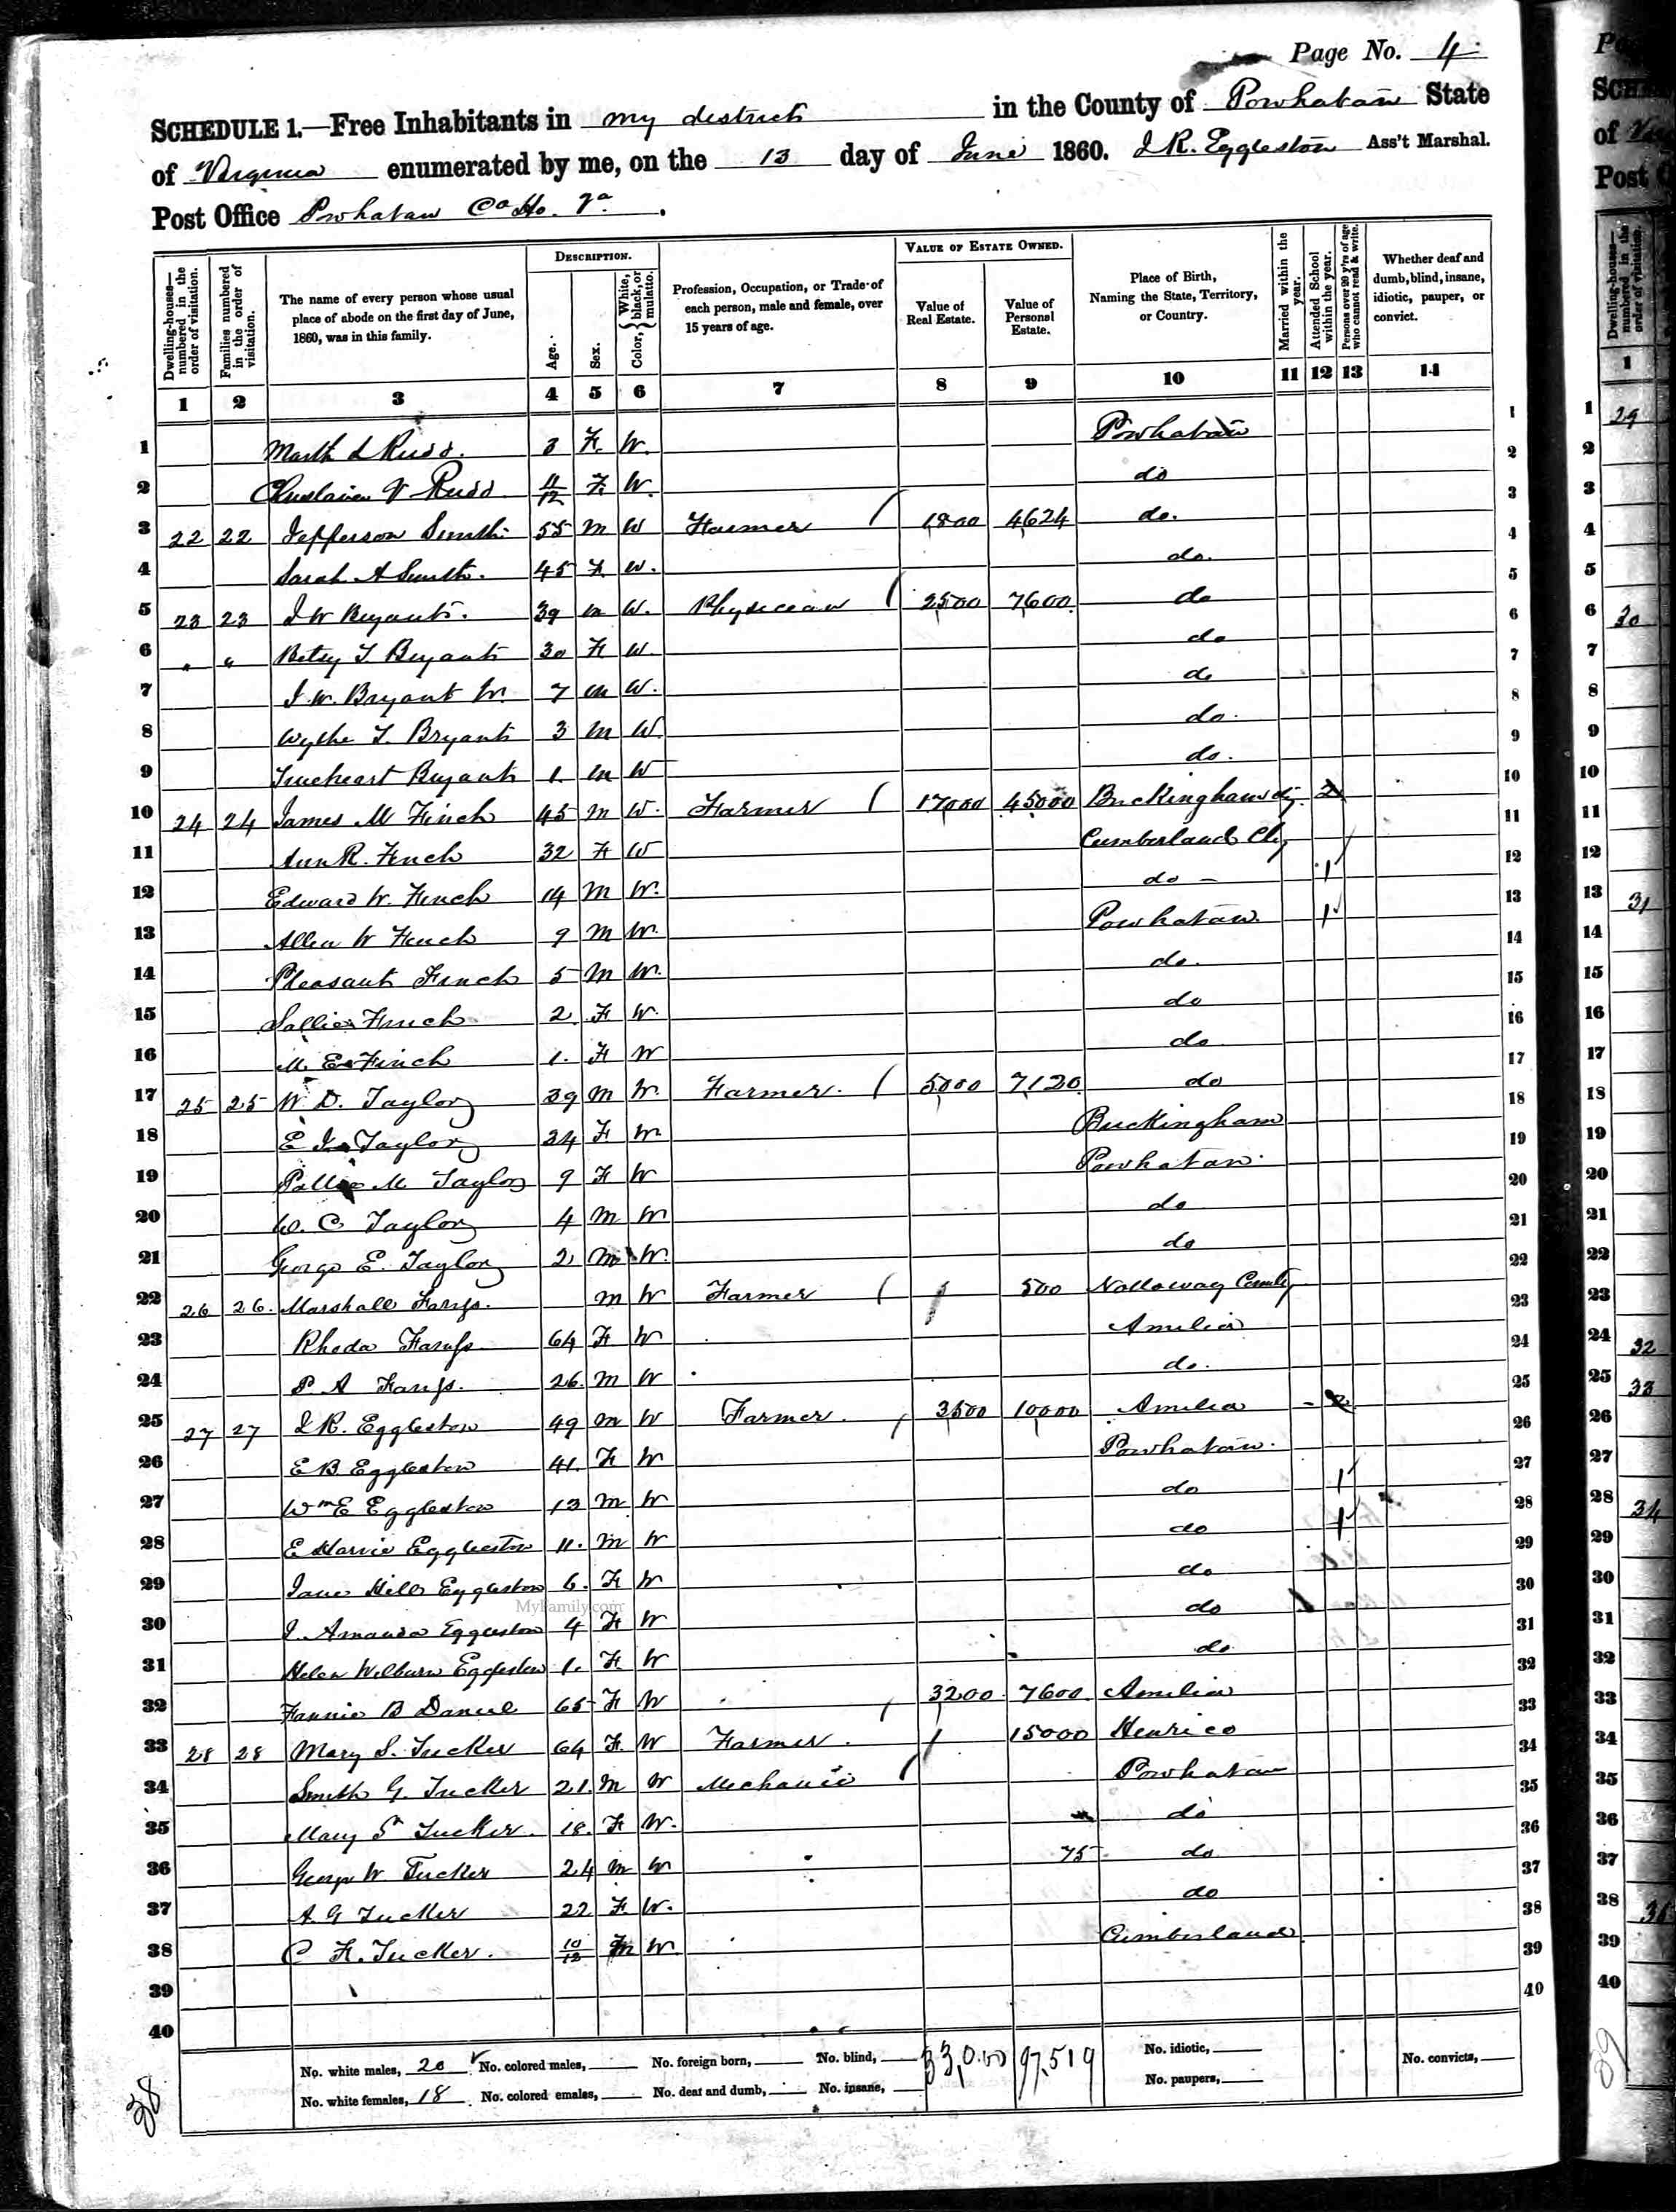 Page No. 4
SCHEDULE 1.—Free Inhabitants in my district in the County of Powhatan State
of Virginia enumerated by me, on the 13 day of June 1860. J R. Eggleston Ass't Marshal.
Post Office Powhatan Co Ho. Va.
DESCRIPTION. VALUE OF ESTATE OWNED.
Dwelling-houses—numbered in the order of visitation. Families numbered in the order of visitation. The name of every person whose usual place of abode on the first day of June, 1860, was in this family. Age. Sex. Color, {White, black, or mulatto. Profession, Occupation, or Trade of each person, male and female, over 15 years of age. Value of Real Estate. Value of Personal Estate. Place of Birth, Naming the State, Territory, or Country. Married within the year. Attended School within the year. Persons over 20 y'rs of age who cannot read & write. Whether deaf and dumb, blind, insane, idiotic, pauper, or convict.
1 2 3 4 5 6 7 8 9 10 11 12 13 14
1 3 F. W. Powhatan 1
2 11/12 F. W. do 2
3 22 22 Jefferson Smith 55 M W Farmer 1800 4624 do. 3
4 Sarah A Smith. 45 F W. do. 4
5 23 23 J W Bryant. 39 M W. Physician 2500 7600 do 5
6 " " Betsy T. Bryant 30 F W. do 6
7 J. W. Bryant Jr. 7 M W. do 7
8 Wythe T. Bryant 3 M W. do. 8
9 Trueheart Bryant 1. M W do. 9
10 24 24 James M Finch 45 M W. Farmer 17000 45000 Buckingham 10
11 Ann R. Finch 32 F W Cumberland Cty 11
12 Edward W. Finch 14 M W. do 1 12
13 Allen W Finch 9 M W. Powhatan 1 13
14 Pleasant Finch 5 M W. do. 14
15 Sallie Finch 2. F W. do 15
16 M. E. Finch 1. F W do 16
17 25 25 W. D. Taylor 39 M W. Farmer. 5000 7120 do 17
18 E Taylor 34 F W. Buckingham 18
19 M Taylor 9 F W Powhatan. 19
20 W. C Taylor 4 M W do 20
21 George E. Taylor 2 M W. do 21
22 26 26. Marshall M W Farmer 500 Nottoway County 22
23 Rheda 64 F W Amelia 23
24 P. A 26. M W do. 24
25 27 27 J R. Eggleston 49 M W Farmer. 3500 10000 Amelia 25
26 E B. Eggleston 41. F W Powhatan. 26
27 Wm E Eggleston 13 M W do 1 27
28 E Harvie Eggleston 11. M W do 1 28
29 Jane Hill Eggleston 6. F W do 29
30 J. Amanda Eggleston 4 F W do 30
31 Helen Wilburn Eggleston 1. F. W do 31
32 Fannie B Daniel 65 F W 3200 7600 Amelia 32
33 28 28 Mary S. Tucker 64 F. W Farmer. 15000 Henrico 33
34 Smith G. Tucker 21. M W Mechanic Powhatan 34
35 Mary S Tucker. 18. F W. do 35
36 George W Tucker 24 M W 75 do 36
37 A. G Tucker 22 F. W. do 37
38 C F. Tucker. 10/12 M W. Cumberland 38
39 39
40 40
No. white males, 20 No. colored males, No. foreign born, No. blind, 33,000 97,519 No. idiotic, No. convicts,
No. white females, 18 No. colored emales, No. deaf and dumb, No. insane, No. paupers,
38
MyFamily.com